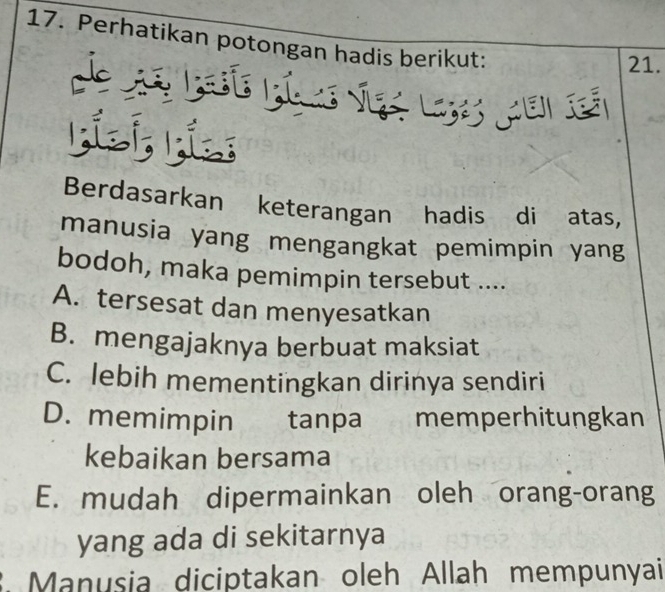 17. Perhatikan potongan hadis berikut:
21.
اتَّخَذَ النَّاسُ رُءُوْسًا جُهَّالًا فَسُئِلُوْا فَأَفْتَوْا بِغَيْرِ عِلْمٍ
فَضَلُّوْا وَأَضَلُّوْا
Berdasarkan keterangan hadis di atas,
manusia yang mengangkat pemimpin yang
bodoh, maka pemimpin tersebut ....
A. tersesat dan menyesatkan
B. mengajaknya berbuat maksiat
C. lebih mementingkan dirinya sendiri
D. memimpin tanpa memperhitungkan
kebaikan bersama
E. mudah dipermainkan oleh orang-orang
yang ada di sekitarnya
Manusia diciptakan oleh Allah mempunyai